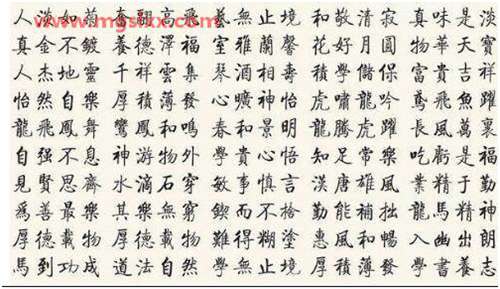 人淡如菊 高飛 藝無止境 和敬清寂 真味是淡
真金不鍍 養德澤福 室雅蘭馨 花好月圓 物華天寶
人杰地靈 千祥雲集 琴 相壽 積學儲 富貴吉祥
怡然自樂 厚積薄發 曠神怡 虎嘯龍吟 鳶飛魚躍
龍飛鳳舞 鸞鳳和鳴 春和景明 龍騰虎躍 長風萬裏
自强不息 神游物外 學貴心悟 知足常樂 吃虧是福
見賢思齊 水滴石穿 敏事慎言 漢唐雄風 業精于勤
爲善最樂 其樂無窮 鍥而不捨 勤能補拙 龍馬精神
厚德載物 厚德載物 難得糊塗 惠風和暢 入幽出朗
馬到功成 道法自然 學無止境 厚積薄發 學書養志